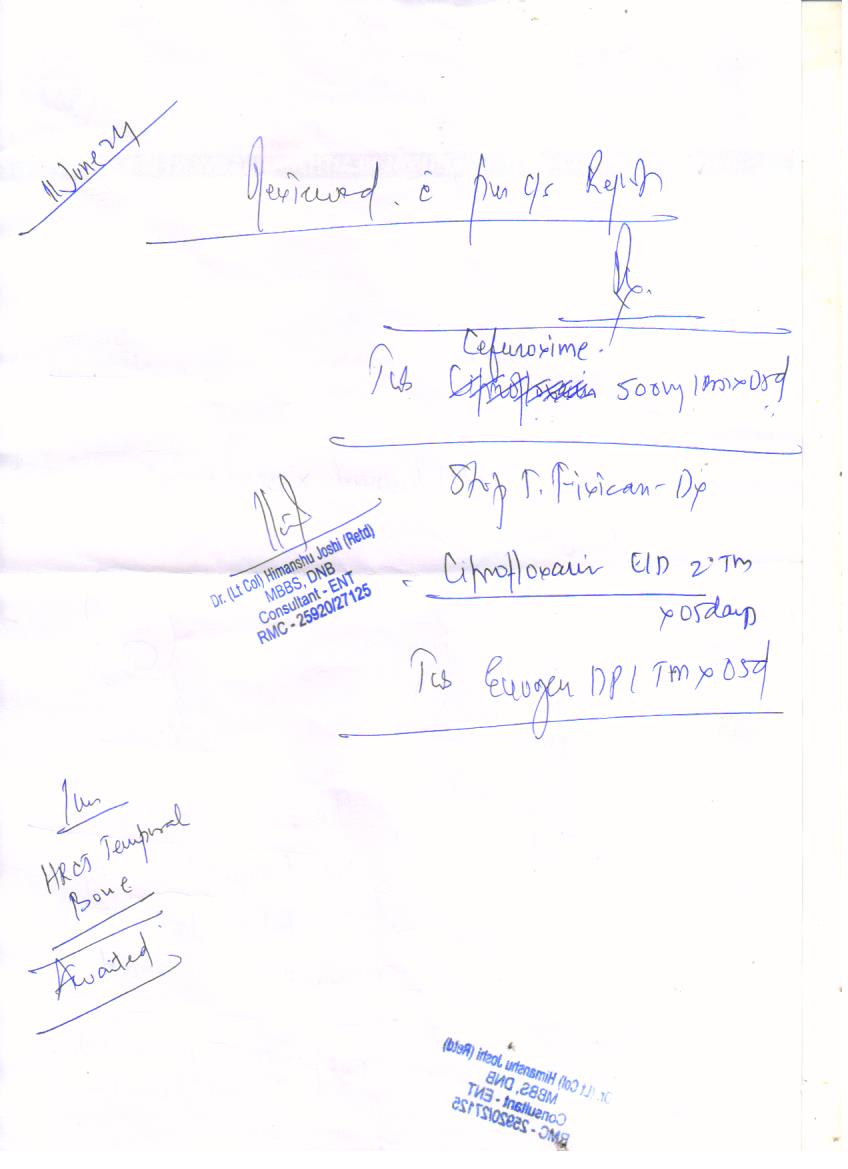 11 June 24
Reviewed. c̄ pus c/s Report
Rx.
Cefuroxime.
Tab 500mg 1 x 05d
Stop T.
Ciprofloxacin E/D 2°
x 05days
Tab DP 1 x 05d
Dr. (Lt Col) Himanshu Joshi (Retd)
MBBS, DNB
Consultant - ENT
RMC - 25920/27125
HRCT Temporal
Bone
Awaited
Dr. (Lt Col) Himanshu Joshi (Retd)
MBBS, DNB
Consultant - ENT
RMC - 25920/27125